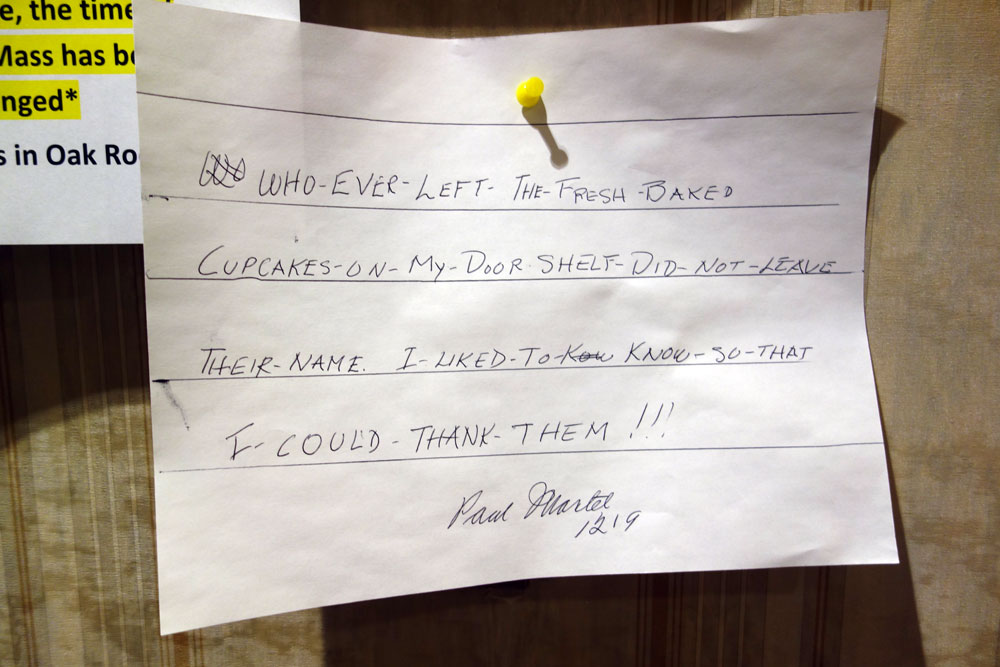 e, the time
Mass has be
nged*
s in Oak Ro
WHO-EVER-LEFT-THE-FRESH-BAKED
CUPCAKES-ON-MY-DOOR SHELF-DID-NOT-LEAVE
THEIR-NAME. I-LIKED-TO-KNOW-SO-THAT
I-COULD-THANK-THEM!!!
Paul Martel
1219